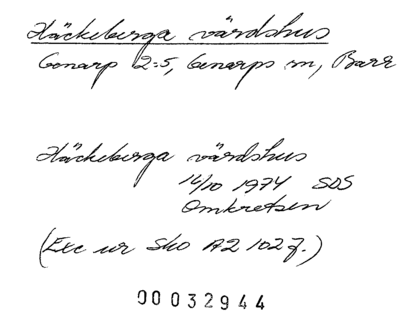 Häckeberga värdshus
Genarp 2:5, Genarps sn, Bara
Häckeberga värdshus
14/10 1974 SDS
Omkretsen
(Exc ur Sho A2 102 f.)
00032944